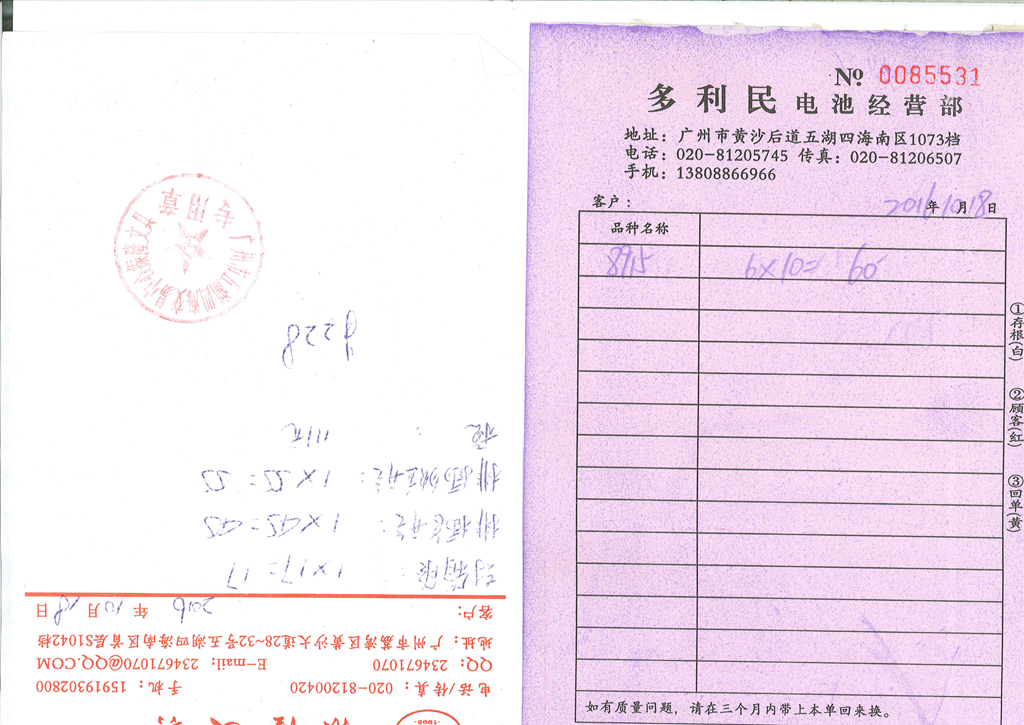 No 0085531
多利民 电池经营部
地址：广州市黄沙后道五湖四海南区1073档
电话：020-81205745 传真：020-81206507
手机：13808866966
客户： 2016年10月18日
品种名称
8915 6×10= 60
①存根(白)
②顾客(红)
③回单(黄)
如有质量问题，请在三个月内带上本单回来换。
电话/传真：020-81200420 手机：15919302800
QQ：234671070 E-mail：234671070@QQ.COM
地址：广州市荔湾区黄沙大道28~32号五湖四海南区首层S1042档
客户： 2016 年 10 月 18 日
1×17=17
1×45=45
1×55=55
111元
专用章